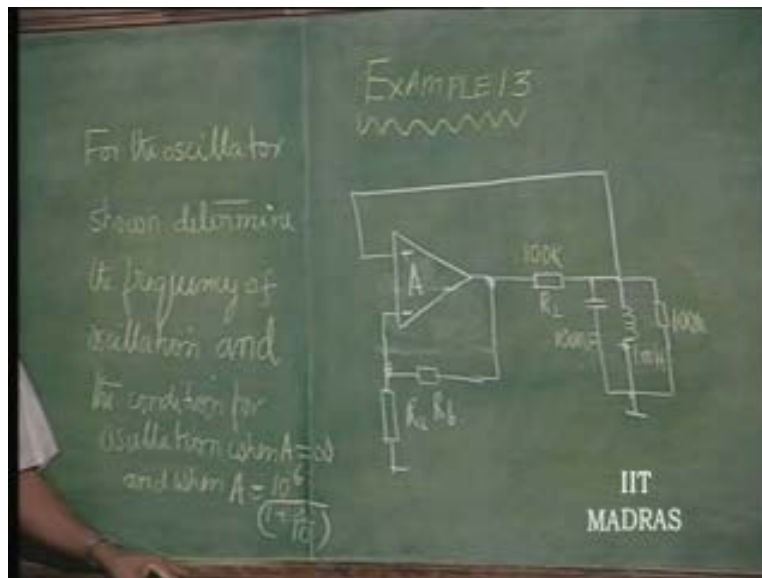 EXAMPLE 13
For the oscillator
shown determine
the frequency of
oscillation and
the condition for
oscillation when A = ∞
and when A = 10^6
A
100K
R1
1mH
100K
Ra Rb
IIT
MADRAS